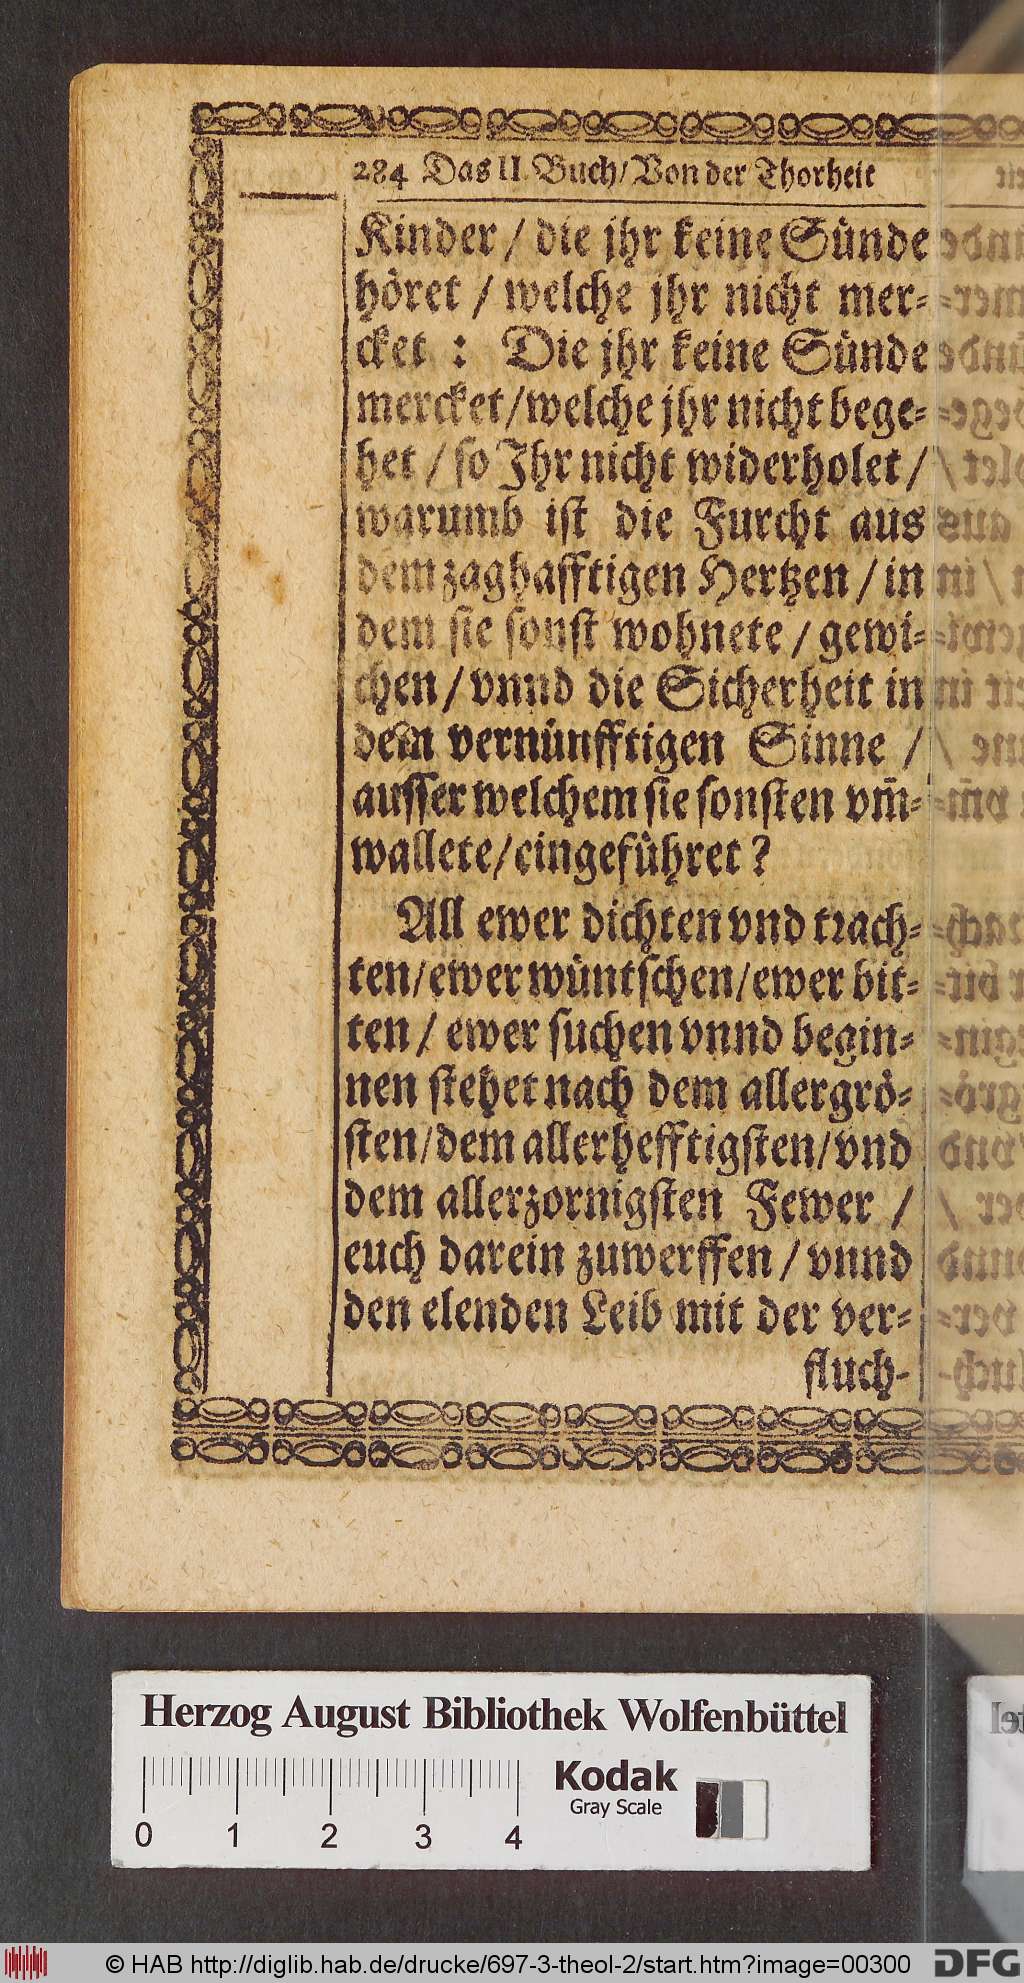 284 Das II. Buch/ Von der Thorheit
Kinder / die jhr keine Sünde
höret / welche jhr nicht mer-
cket : Die jhr keine Sünde
mercket/welche jhr nicht bege-
het / so Ihr nicht widerholet /
warumb ist die Furcht aus
dem zaghafftigen Hertzen / in
dem sie sonst wohnete / gewi-
chen / vnnd die Sicherheit in
dem vernünfftigen Sinne /
ausser welchem sie sonsten vm̄-
wallete/eingeführet ?
All ewer dichten vnd trach-
ten/ewer wüntschen/ewer bit-
ten / ewer suchen vnnd begin-
nen stehet nach dem allergrö-
sten/dem allerhefftigsten/vnd
dem allerzornigsten Fewer /
euch darein zuwerffen / vnnd
den elenden Leib mit der ver-
fluch-
Herzog August Bibliothek Wolfenbüttel
Kodak
Gray Scale
0 1 2 3 4
© HAB http://diglib.hab.de/drucke/697-3-theol-2/start.htm?image=00300
DFG